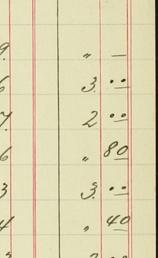 9. " —
6 3. ..
7. 2 ..
6 " 80
3 3. ..
4 " 40